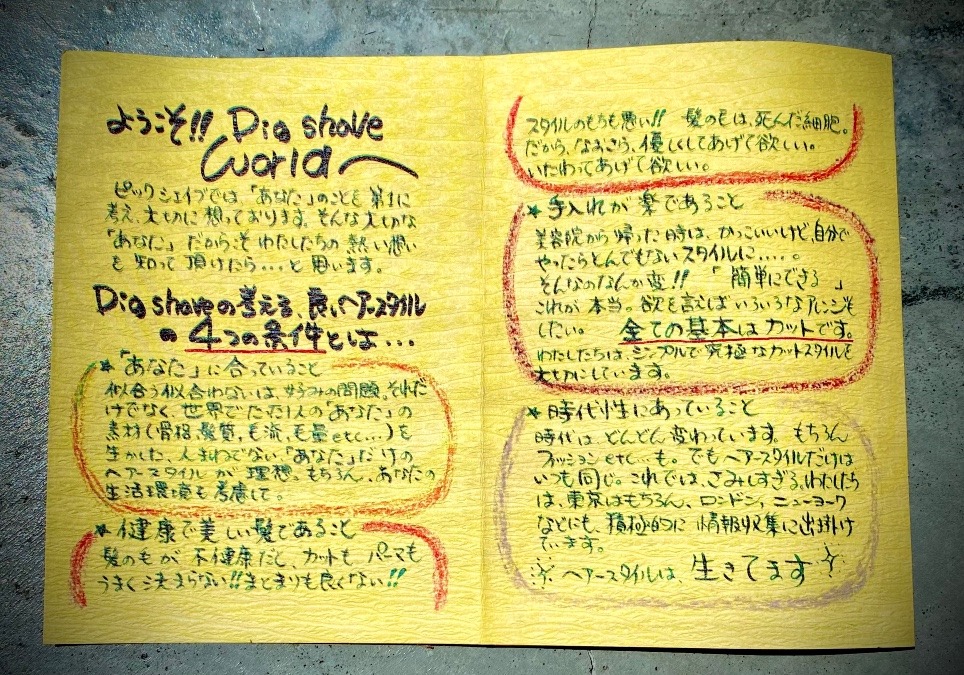 ようこそ!! Dig shave
World〜
ビックシェイブでは、「あなた」のことを第1に
考え、大切に想っております。そんな大切な
「あなた」だからこそわたしたちの熱い想い
も知って頂けたら…と思います。
Dig shaveの考える、良いヘアースタイル
の4つの条件とは…
★「あなた」に合っていること
似合う似合わないは、好みの問題。それだ
けでなく、世界でただ1人の「あなた」の
素材(骨格、髪質、毛流、毛量etc…)を
生かした、人まねでない「あなた」だけの
ヘアースタイルが理想。もちろん、あなたの
生活環境も考慮して。
★健康で美しい髪であること
髪のもが不健康だと、カットもパーマも
うまく決まらない!!まとまりも良くない!!
スタイルのもちも悪い!! 髪の毛は、死んだ細胞。
だから、なおさら、優しくしてあげて欲しい。
いたわってあげて欲しい。
★手入れが楽であること
美容院から帰った時は、かっこいいけど、自分で
やったらとんでもないスタイルに…。
そんなのなんか変!! 「簡単にできる」
これが本当。欲を言えばいろいろなアレンジも
したい。 全ての基本はカットです。
わたしたちは、シンプルで究極なカットスタイルを
大切にしています。
★時代性にあっていること
時代は、どんどん変わっています。もちろん
ファッションetc…も。でもヘアースタイルだけは
いつも同じ。これでは、さみしすぎる。わたしたち
は、東京はもちろん、ロンドン、ニューヨーク
などにも、積極的に情報収集に出掛け
ています。
ヘアースタイルは、生きてます